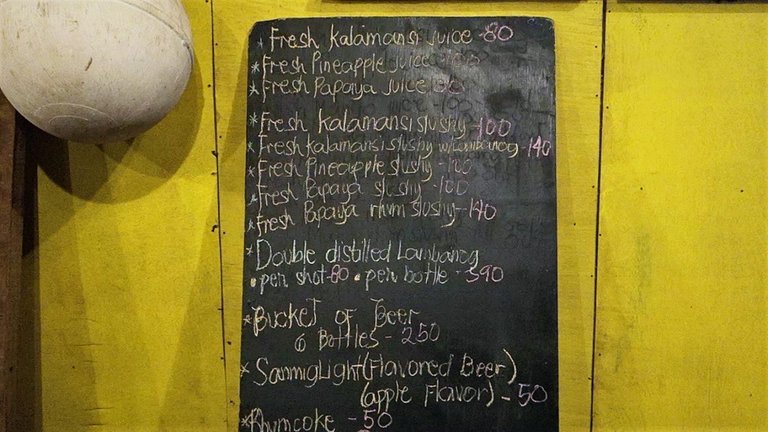 * Fresh Kalamansi Juice - 80
* Fresh Pineapple Juice
* Fresh Papaya Juice
* Fresh Kalamansi slushy - 100
* Fresh kalamansi slushy w/Lambanog - 140
* Fresh Pineapple slushy - 100
* Fresh Papaya slushy - 100
* Fresh Papaya rhum slushy - 140
* Double distilled Lambanog
• per shot - 80 • per bottle - 390
* Bucket of Beer
6 Bottles - 250
* SanmigLight (Flavored Beer)
(apple Flavor) - 50
* Rhumcoke - 50